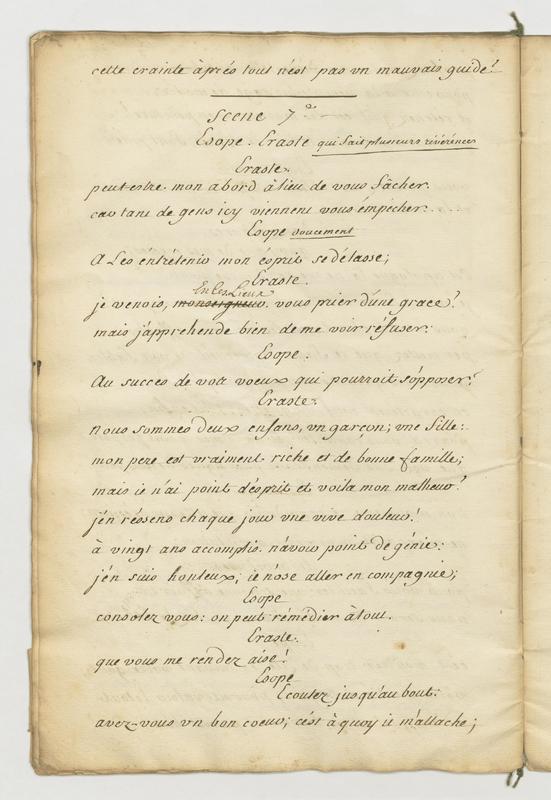 cette crainte àprés tout n'est pas vn mauvais guide!
Scene 7.e
Esope. Eraste qui fait plusieurs révérences
Eraste.
peutestre mon abord à lieu de vous fâcher.
car tant de gens icy viennent vous émpêcher....
Esope doucement
A Les éntrétenir mon ésprit se délasse;
Eraste.
En Ces Lieux
je venois, monseigneur. vous prier d'une grace!
mais j'apprehende bien de me voir réfuser:
Esope.
Au succes de vos voeux qui pourroit s'ópposer?
Eraste.
nous sommes deux enfans, vn garçon; vne fille:
mon pere est vraiment riche et de bonne famille;
mais ie n'ai point d'ésprit et voila mon malheur!
j'én réssens chaque jour vne vive douleur!
à vingt ans accomplis. n'avoir point de génie:
j'én suis honteux; ie n'ose aller en compagnie;
Esope
consolez vous: on peut rémédier à tout.
Eraste.
que vous me rendez aise!
Esope
Ecoutez jusqu'au bout:
avez-vous vn bon coeur; c'ést à quoy ie m'attache;